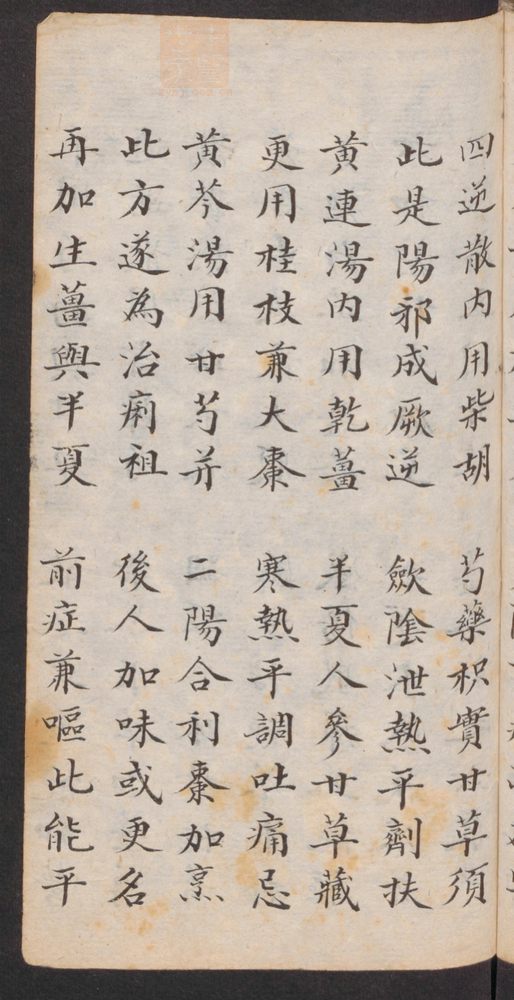 四逆散內用柴胡　芍藥枳實甘草須
此是陽邪成厥逆　歛陰泄熱平劑扶
黃連湯內用乾薑　半夏人參甘草藏
更用桂枝兼大棗　寒熱平調吐痛忌
黃芩湯用甘芍并　二陽合利棗加烹
此方遂為治痢祖　後人加味或更名
再加生薑與半夏　前症兼嘔此能平